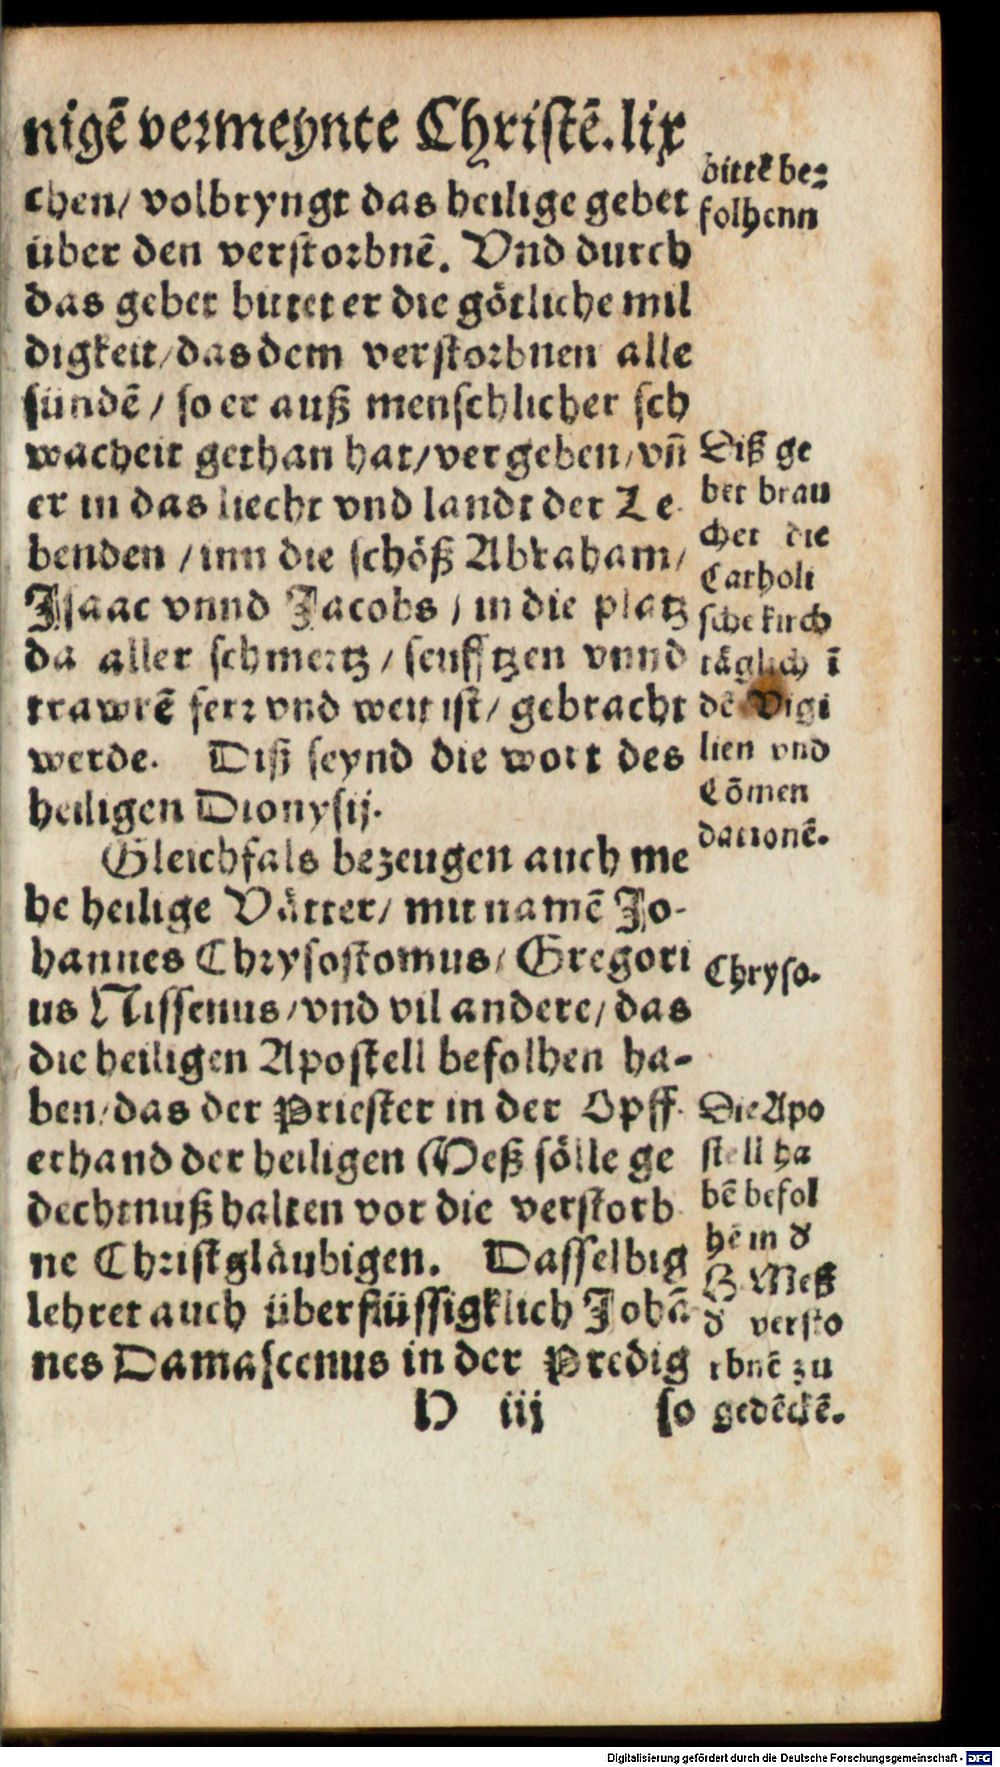 nigē vermeynte Christē. lix
chen/ volbryngt das heilige gebet
über den verstorbnē. Vnd durch
das gebet bittet er die götliche mil
digkeit/ das dem verstorbnen alle
sündē / so er auß menschlicher sch
wacheit gethan hat/ vergeben/ vñ
er in das liecht vnd landt der Le
benden / inn die schöß Abraham/
Isaac vnnd Jacobs / in die platz
da aller schmertz / seufftzen vnnd
trawrē ferr vnd weit ist/ gebracht
werde. Diß seynd die wort des
heiligen Dionysij.
Gleichfals bezeugen auch me
he heilige Vätter/ mit namē Jo-
hannes Chrysostomus/ Gregori
us Nissenus/ vnd vil andere/ das
die heiligen Apostell befolhen ha-
ben/ das der Priester in der Opff
erhand der heiligen Meß sölle ge
dechtnuß halten vor die verstorb
ne Christgläubigen. Dasselbig
lehret auch überflüssigklich Johā
nes Damascenus in der Predig
H iij so
bittē be-
folhenn
Diß ge
bet brau
chet die
Catholi
sche kirch
täglich ī
dē Vigi
lien vnd
Cōmen
dationē.
Chryso.
Die Apo
stell ha
bē befol
hē in d
H Meß
d versto
rbnē zu
gedēckē.
Digitalisierung gefördert durch die Deutsche Forschungsgemeinschaft - DFG